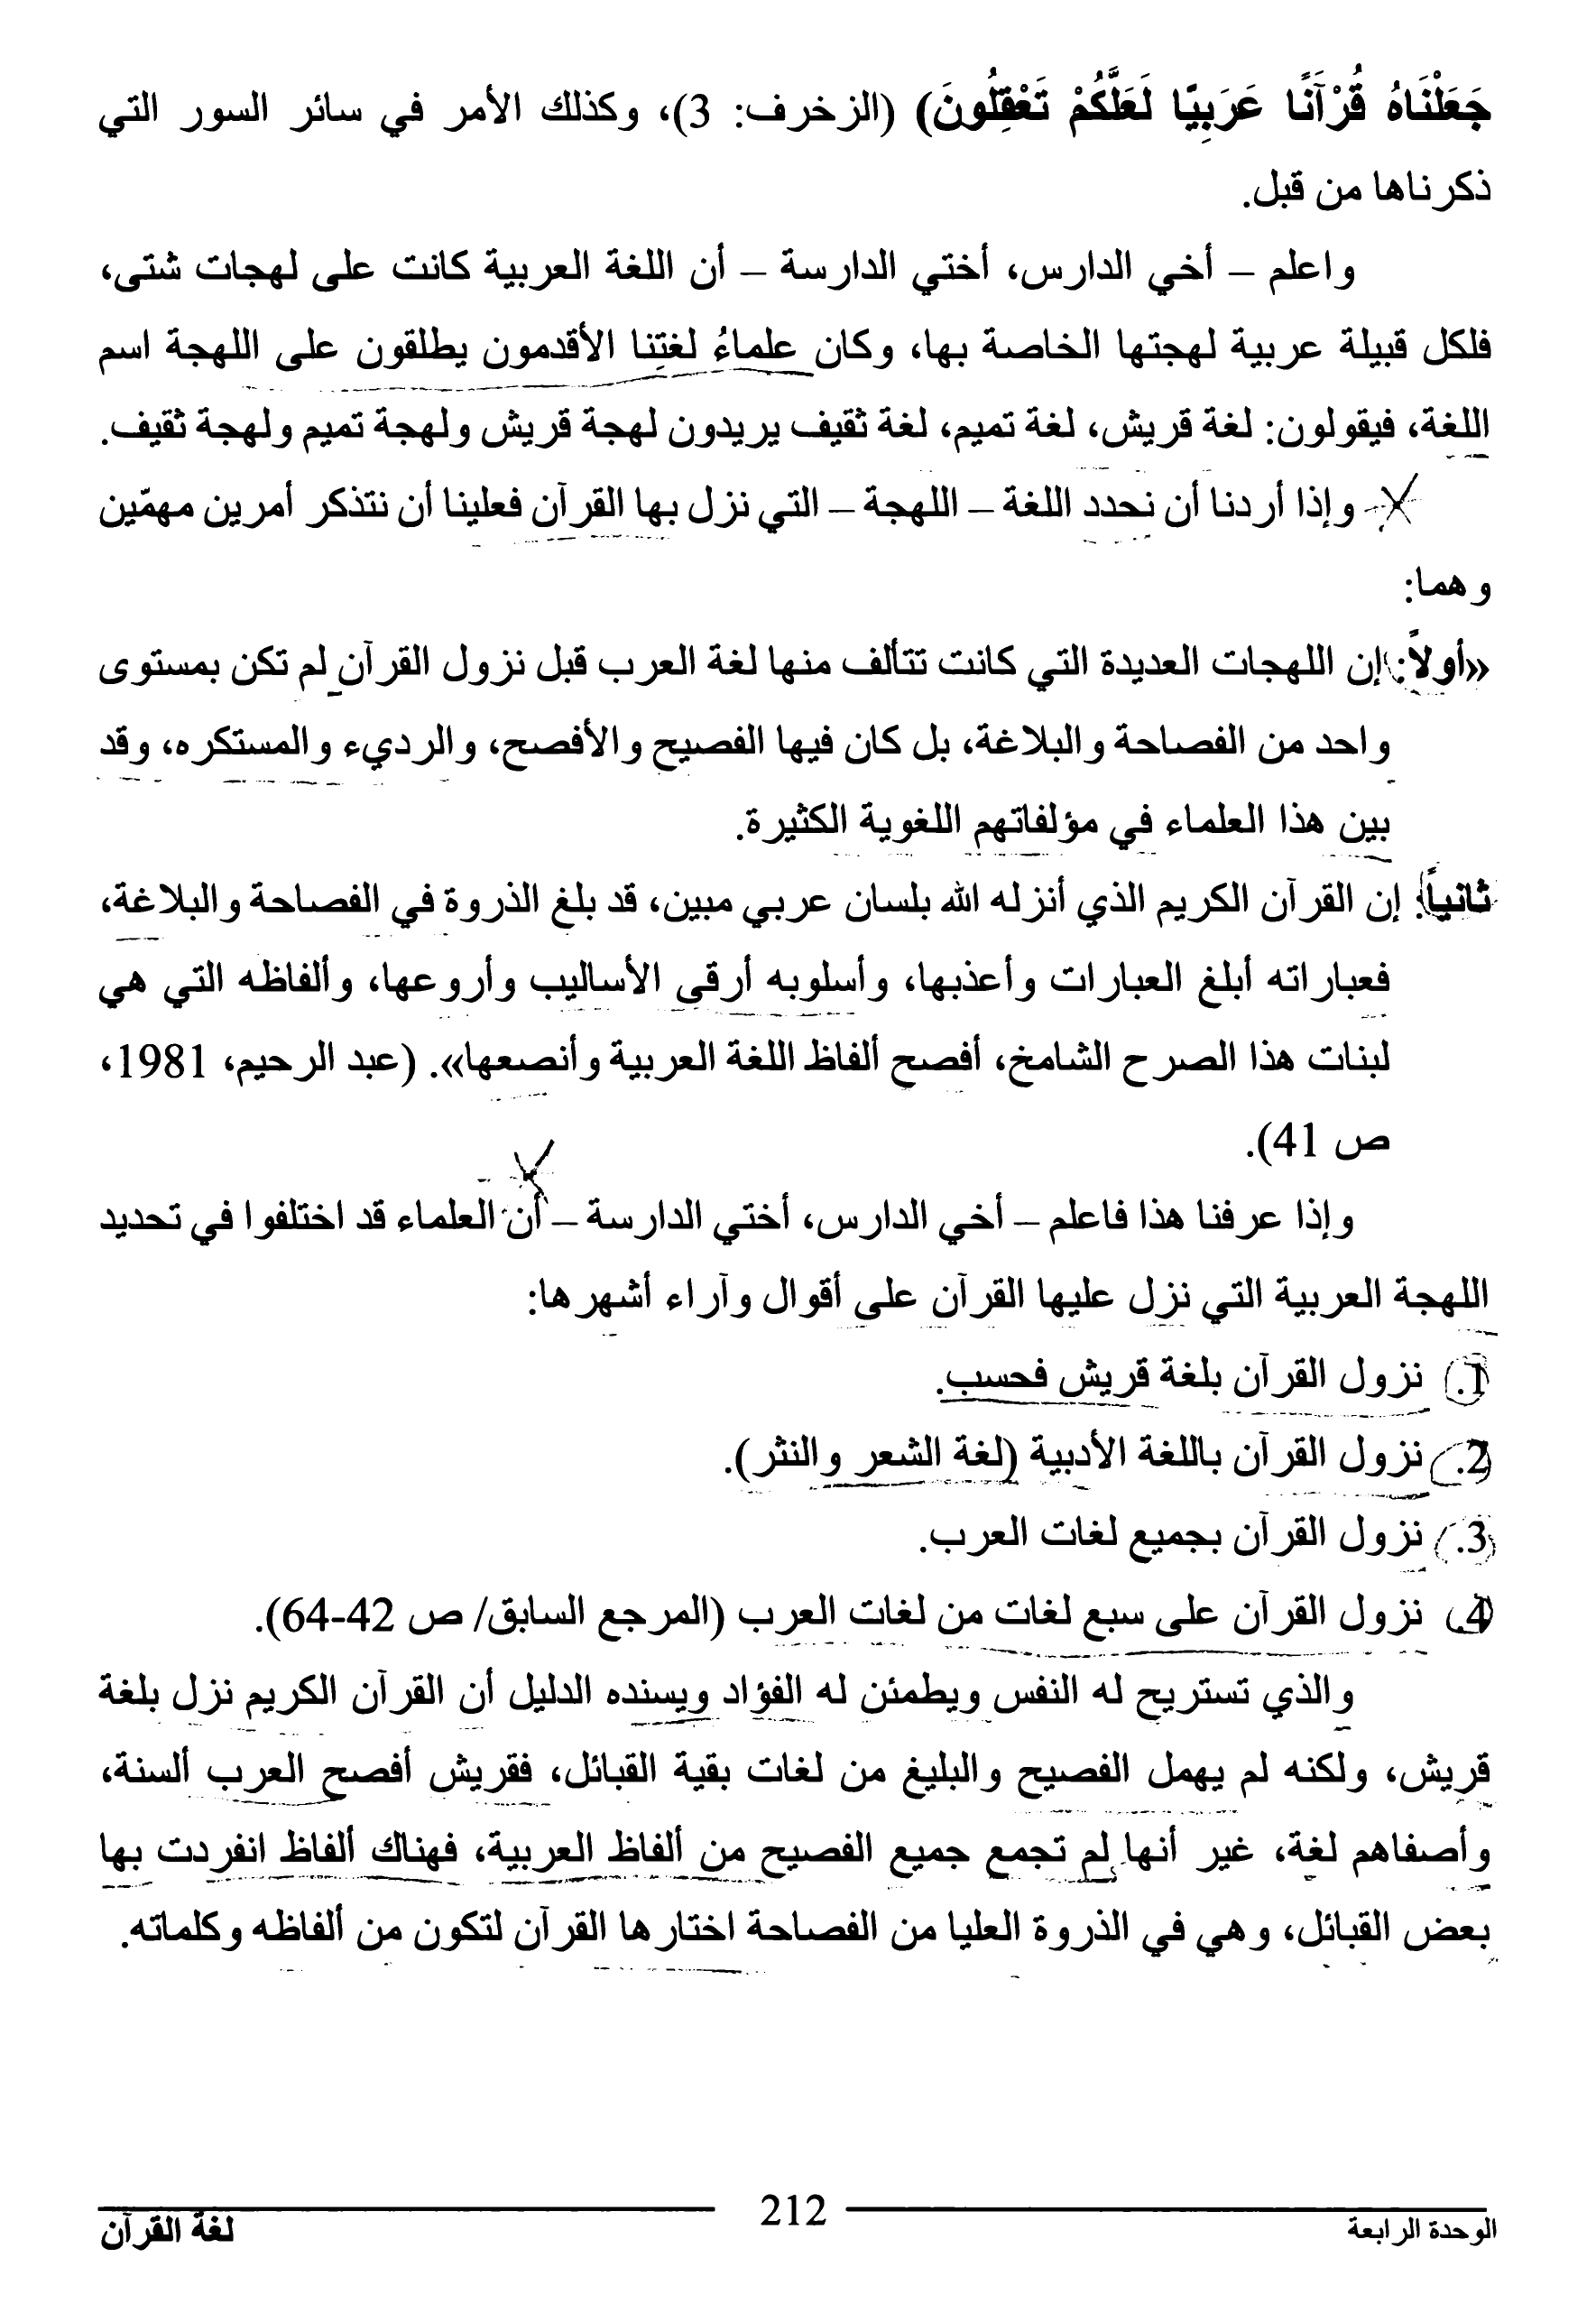 جَعَلْنَاهُ قُرْآنًا عَرَبِيًّا لَعَلَّكُمْ تَعْقِلُونَ) (الزخرف: 3)، وكذلك الأمر في سائر السور التي
ذكرناها من قبل.
واعلم – أخي الدارس، أختي الدارسة – أن اللغة العربية كانت على لهجات شتى،
فلكل قبيلة عربية لهجتها الخاصة بها، وكان علماءُ لغتِنا الأقدمون يطلقون على اللهجة اسم
اللغة، فيقولون: لغة قريش، لغة تميم، لغة ثقيف يريدون لهجة قريش ولهجة تميم ولهجة ثقيف.
وإذا أردنا أن نحدد اللغة – اللهجة – التي نزل بها القرآن فعلينا أن نتذكر أمرين مهمّين
وهما:
«أولاً: إن اللهجات العديدة التي كانت تتألف منها لغة العرب قبل نزول القرآن لم تكن بمستوى
واحد من الفصاحة والبلاغة، بل كان فيها الفصيح والأفصح، والرديء والمستكره، وقد
بين هذا العلماء في مؤلفاتهم اللغوية الكثيرة.
ثانياً: إن القرآن الكريم الذي أنزله الله بلسان عربي مبين، قد بلغ الذروة في الفصاحة والبلاغة،
فعباراته أبلغ العبارات وأعذبها، وأسلوبه أرقى الأساليب وأروعها، وألفاظه التي هي
لبنات هذا الصرح الشامخ، أفصح ألفاظ اللغة العربية وأنصعها». (عبد الرحيم، 1981،
ص 41).
وإذا عرفنا هذا فاعلم – أخي الدارس، أختي الدارسة – أن العلماء قد اختلفوا في تحديد
اللهجة العربية التي نزل عليها القرآن على أقوال وآراء أشهرها:
1. نزول القرآن بلغة قريش فحسب.
2. نزول القرآن باللغة الأدبية (لغة الشعر والنثر).
3. نزول القرآن بجميع لغات العرب.
4. نزول القرآن على سبع لغات من لغات العرب (المرجع السابق/ ص 42-64).
والذي تستريح له النفس ويطمئن له الفؤاد ويسنده الدليل أن القرآن الكريم نزل بلغة
قريش، ولكنه لم يهمل الفصيح والبليغ من لغات بقية القبائل، فقريش أفصح العرب ألسنة،
وأصفاهم لغة، غير أنها لم تجمع جميع الفصيح من ألفاظ العربية، فهناك ألفاظ انفردت بها
بعض القبائل، وهي في الذروة العليا من الفصاحة اختارها القرآن لتكون من ألفاظه وكلماته.
212
الوحدة الرابعة
لغة القرآن